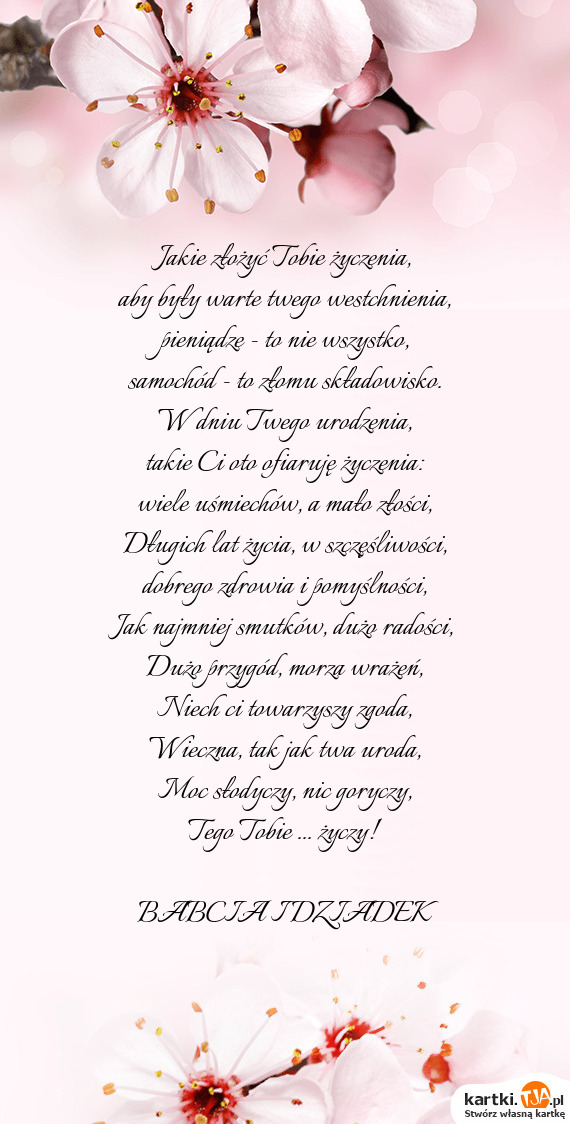 Jakie złożyć Tobie życzenia,
aby były warte twego westchnienia,
pieniądze - to nie wszystko,
samochód - to złomu składowisko.
W dniu Twego urodzenia,
takie Ci oto ofiaruję życzenia:
wiele uśmiechów, a mało złości,
Długich lat życia, w szczęśliwości,
dobrego zdrowia i pomyślności,
Jak najmniej smutków, dużo radości,
Dużo przygód, morza wrażeń,
Niech ci towarzyszy zgoda,
Wieczna, tak jak twa uroda,
Moc słodyczy, nic goryczy,
Tego Tobie ... życzy!
BABCIA I DZIADEK
kartki.TJA.pl
Stwórz własną kartkę